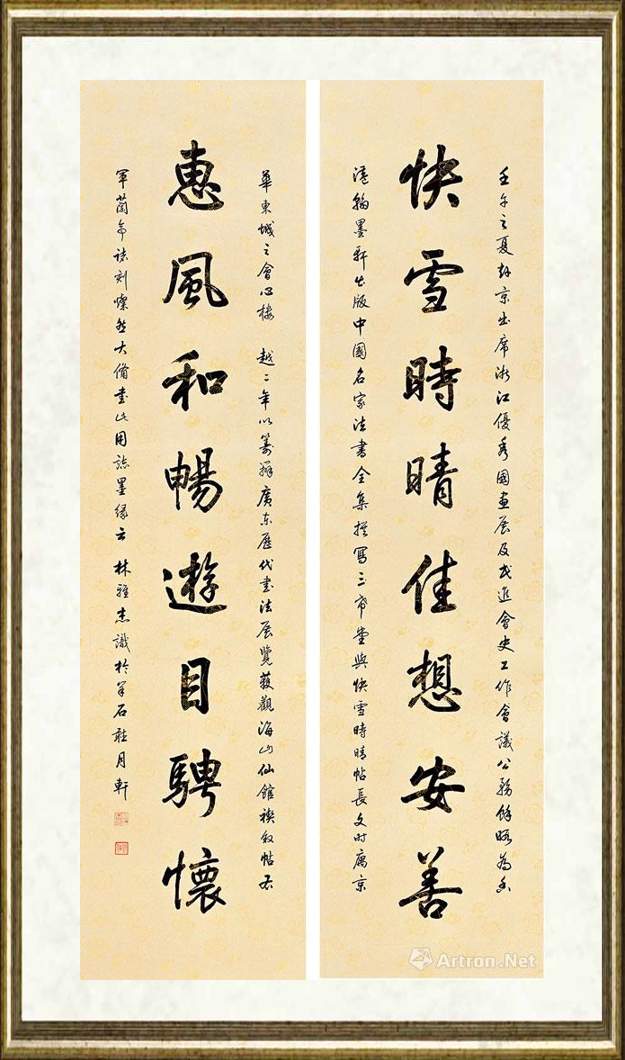 壬午之夏赴京出席浙江優秀國畫展及民進會史工作會議公務餘暇為香
快雪時晴佳想安善
港翰墨軒出版中國名家法書全集撰寫三希堂與快雪時晴帖長文时寓京
華東城之會心樓 越二年以籌辦廣東歷代書法展覽獲觀海山仙館禊叙帖右
惠風和暢遊目騁懷
軍蘭亭諸刻燦然大備書此用誌墨緣云 林雅杰識於羊石月軒
Artron.Net